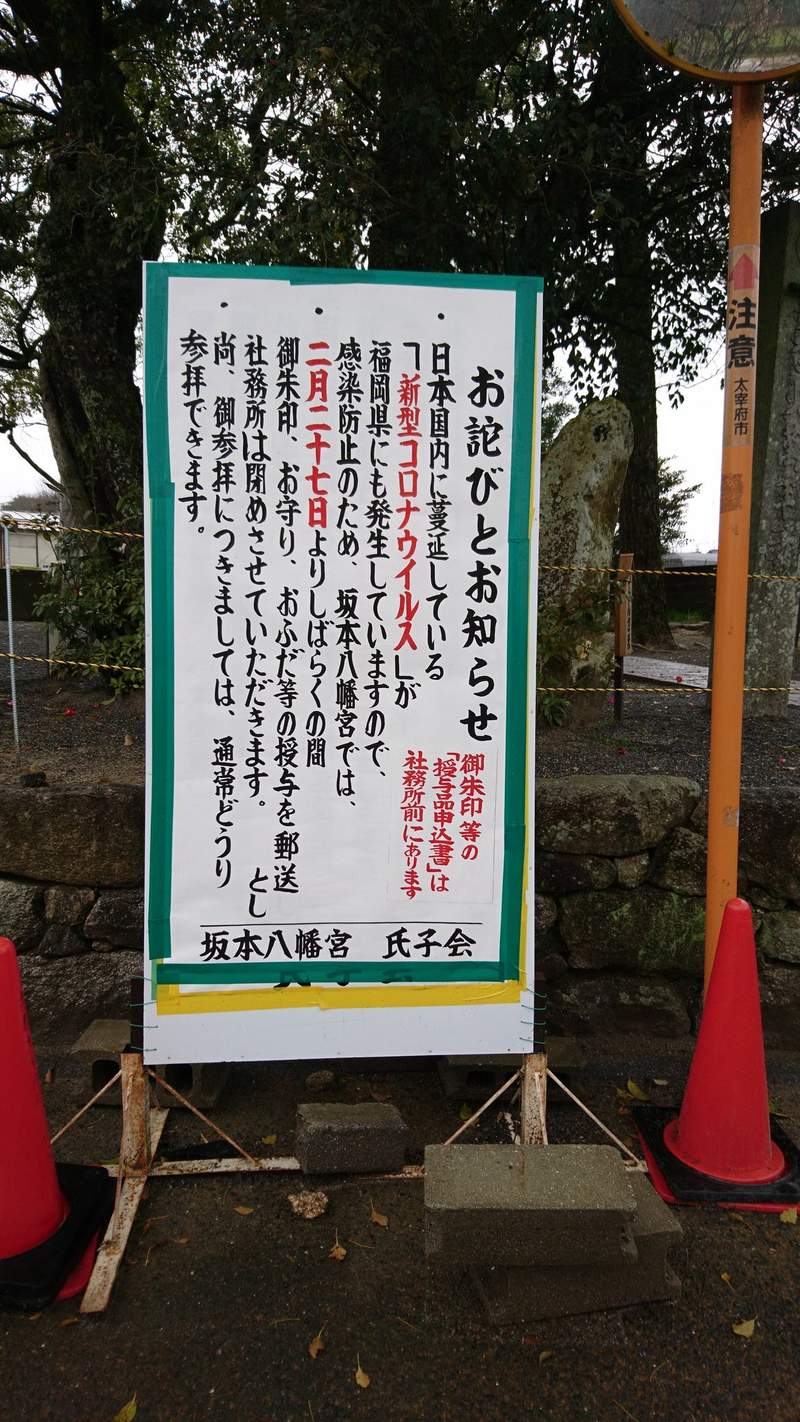 お詫びとお知らせ
・日本国内に蔓延している
「新型コロナウイルス」が
福岡県にも発生していますので、
感染防止のため、坂本八幡宮では、
・二月二十七日よりしばらくの間
御朱印、お守り、おふだ等の授与を郵送とし
社務所は閉めさせていただきます。
・尚、御参拝につきましては、通常どうり
参拝できます。
御朱印等の
「授与品申込書」は
社務所前にあります
坂本八幡宮 氏子会
注意
太宰府市